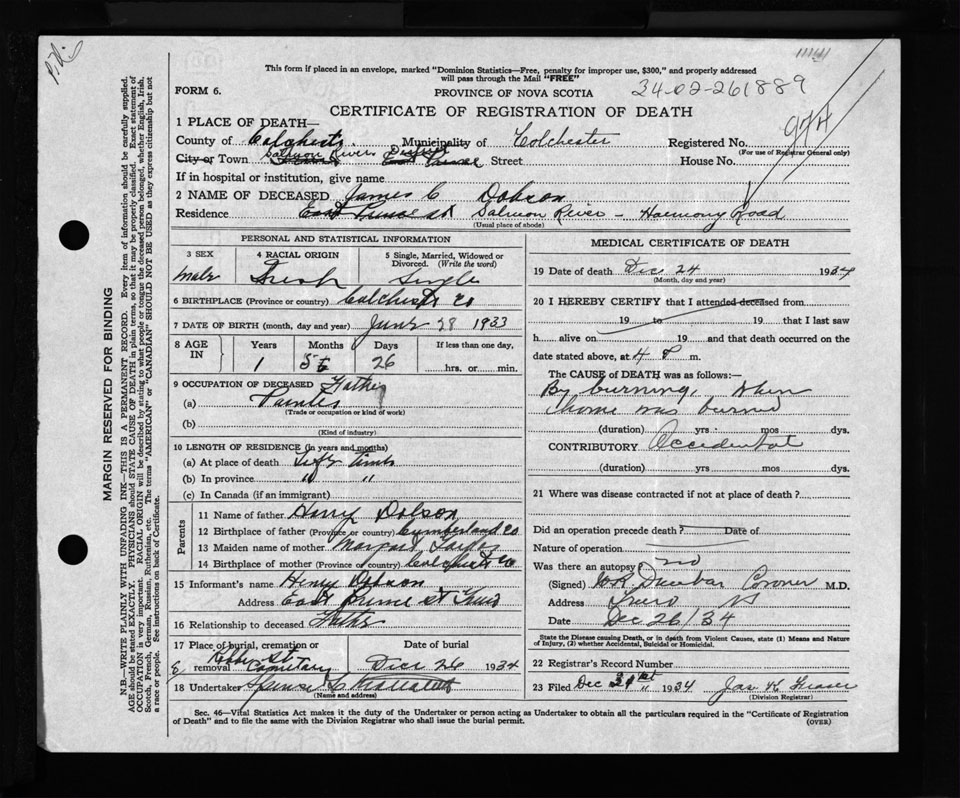 This form if placed in an envelope, marked "Dominion Statistics—Free, penalty for improper use, $300," and properly addressed
will pass through the Mail "FREE"
FORM 6.
PROVINCE OF NOVA SCOTIA
34-02-261889
CERTIFICATE OF REGISTRATION OF DEATH
974
1 PLACE OF DEATH—
County of Colchester Municipality of Colchester Registered No.
(For use of Registrar General only)
City or Town Salmon River Street House No.
If in hospital or institution, give name
2 NAME OF DECEASED James C Dobson
Residence East Prince St Salmon River - Harmony Road
(Usual place of abode)
PERSONAL AND STATISTICAL INFORMATION
3 SEX 4 RACIAL ORIGIN 5 Single, Married, Widowed or Divorced. (Write the word)
Male Irish Single
6 BIRTHPLACE (Province or country) Colchester Co
7 DATE OF BIRTH (month, day and year) June 28 1933
8 AGE IN Years Months Days If less than one day,
1 5 26 hrs. or min.
9 OCCUPATION OF DECEASED Father
(a) Painter
(Trade or occupation or kind of work)
(b)
(Kind of industry)
10 LENGTH OF RESIDENCE (in years and months)
(a) At place of death Life time
(b) In province " "
(c) In Canada (if an immigrant)
Parents
11 Name of father Harry Dobson
12 Birthplace of father (Province or country) Cumberland Co
13 Maiden name of mother
14 Birthplace of mother (Province or country) Colchester Co
15 Informant's name Henry Dobson
Address East Prince St Truro
16 Relationship to deceased Father
17 Place of burial, cremation or removal Date of burial
Robie St Cemetery Dec 26 1934
18 Undertaker
(Name and address)
MEDICAL CERTIFICATE OF DEATH
19 Date of death Dec 24 1934
(Month, day and year)
20 I HEREBY CERTIFY that I attended deceased from
19 to 19 that I last saw
h alive on 19 and that death occurred on the
date stated above, at 4 P m.
The CAUSE of DEATH was as follows:—
By burning, when
home was burned
(duration) yrs mos dys.
CONTRIBUTORY Accidental
(duration) yrs mos dys.
21 Where was disease contracted if not at place of death?
Did an operation precede death? Date of
Nature of operation
Was there an autopsy? no
(Signed) Dunbar Coroner M.D.
Address Truro NS
Date Dec 26/34
State the Disease causing Death, or in death from Violent Causes, state (1) Means and Nature
of Injury, (2) whether Accidental, Suicidal or Homicidal.
22 Registrar's Record Number
23 Filed Dec 31st 1934 Jas H Fraser
(Division Registrar)
Sec. 46—Vital Statistics Act makes it the duty of the Undertaker or person acting as Undertaker to obtain all the particulars required in the "Certificate of Registration
of Death" and to file the same with the Division Registrar who shall issue the burial permit.
(OVER)
MARGIN RESERVED FOR BINDING
N.B.—WRITE PLAINLY WITH UNFADING INK—THIS IS A PERMANENT RECORD. Every item of information should be carefully supplied.
AGE should be stated EXACTLY. PHYSICIANS should STATE CAUSE OF DEATH in plain terms, so that it may be properly classified. Exact statement of
OCCUPATION is very important. RACIAL ORIGIN will be described by stating to what people or tongue the deceased person belonged, whether English, Irish,
Scotch, French, German, Russian, Ruthenian, etc. The terms "AMERICAN" or "CANADIAN" SHOULD NOT BE USED as they express citizenship but not
a race or people. See instructions on back of Certificate.